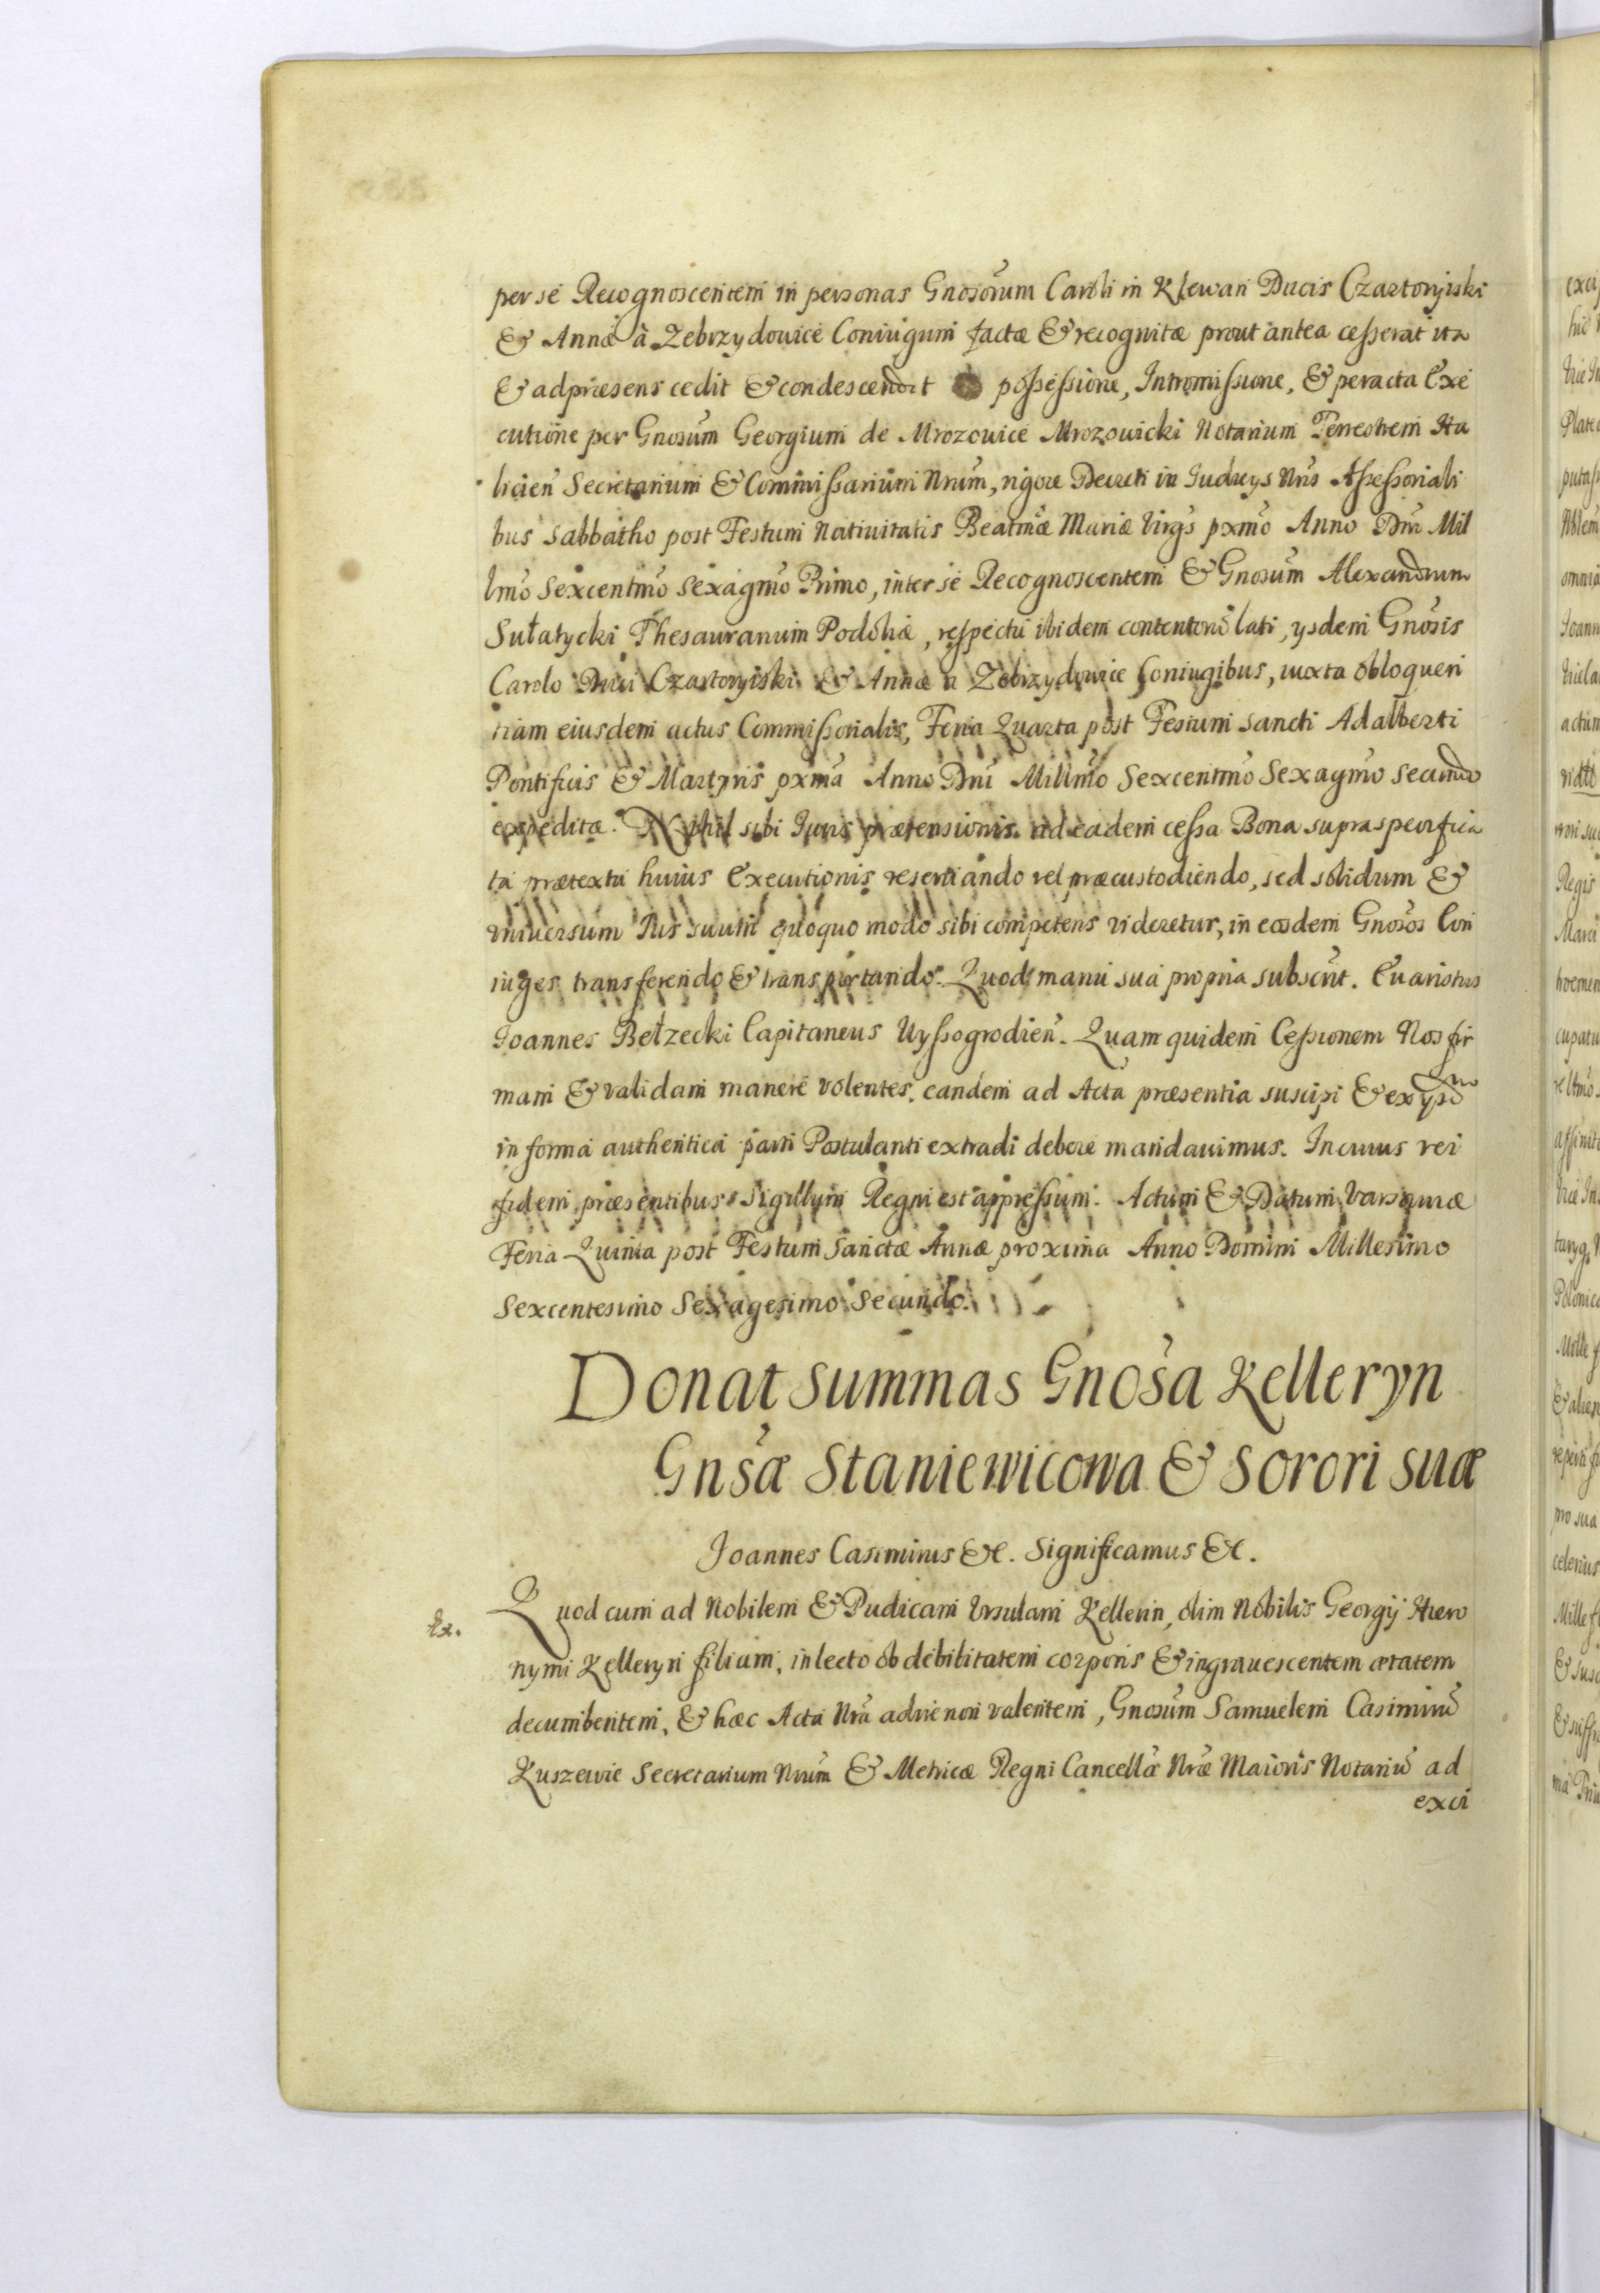 per se Recognoscentem in personas Gnosorum Caroli in Klewan Ducis Czartoryiski
& Annæ à Zebrzydowice Coniugum factæ & recognitæ prout antea cesserat ita
& ad præsens cedit & condescendit possessione, Intromissione, & peracta Exe
cutione per Gnosum Georgium de Mrozowice Mrozowicki Notarium Terrestrem Ha
licien Secretarium & Commissarium Nrum, rigore Decreti in Iudicys Nris Assessoriali
bus Sabbatho post Festum Nativitatis Beatmæ Mariæ Virgs pxmo Anno Dni Mil
lmo Sexcentmo Sexagmo Primo, inter se Recognoscentem & Gnosum Alexandrum
Sułatycki Thesaurarium Podoliæ, respectu ibidem contentoru lati, ysdem Gnosis
Carolo Duci Czartoryiski & Annæ a Zebrzydowice Coniugibus, iuxta obloquen
tiam eiusdem actus Commissorialis, Feria Quarta post Festum Sancti Adalberti
Pontificis & Martyris pxma Anno Dni Millmo Sexcentmo Sexagmo Secundo
expeditæ. Nihil sibi Iuris prætensionis ad eadem cessa Bona supraspecifica
ta prætextu huius Executionis reseruando vel præcustodiendo, sed solidum &
vniuersum Ius suum quoquo modo sibi competens videretur, in eosdem Gnosos Con
iuges transferendo & transportando. Quod manu sua propria subscrit. Euaristus
Joannes Bełzecki Capitaneus Wyssogrodien. Quam quidem Cessionem Nos fir
mam & validam manere volentes, eandem ad Acta præsentia suscipi & ex ysdem
in forma authentica parti Postulanti extradi debere mandauimus. In cuius rei
fidem præsentibus Sigillum Regni est appressum. Actum & Datum Varsauiæ
Feria Quinta post Festum Sanctæ Annæ proxima Anno Domini Millesimo
Sexcentesimo Sexagesimo Secundo.
Donat summas Gnosa Kelleryn
Gnsæ Staniewicowa & Sorori suæ
Joannes Casimirus &c. Significamus &c.
Ex.
Quod cum ad Nobilem & Pudicam Vrsulam Kellerin, olim Nobilis Georgij Hiero
nymi Kelleryn filiam, in lecto ob debilitatem corporis & ingrauescentem ætatem
decumbentem, & hæc Acta Nra adire non valentem, Gnosum Samuelem Casimiru
Kuszewic Secretarium Nrum & Metricæ Regni Cancellæ Nræ Maioris Notariu ad
exci